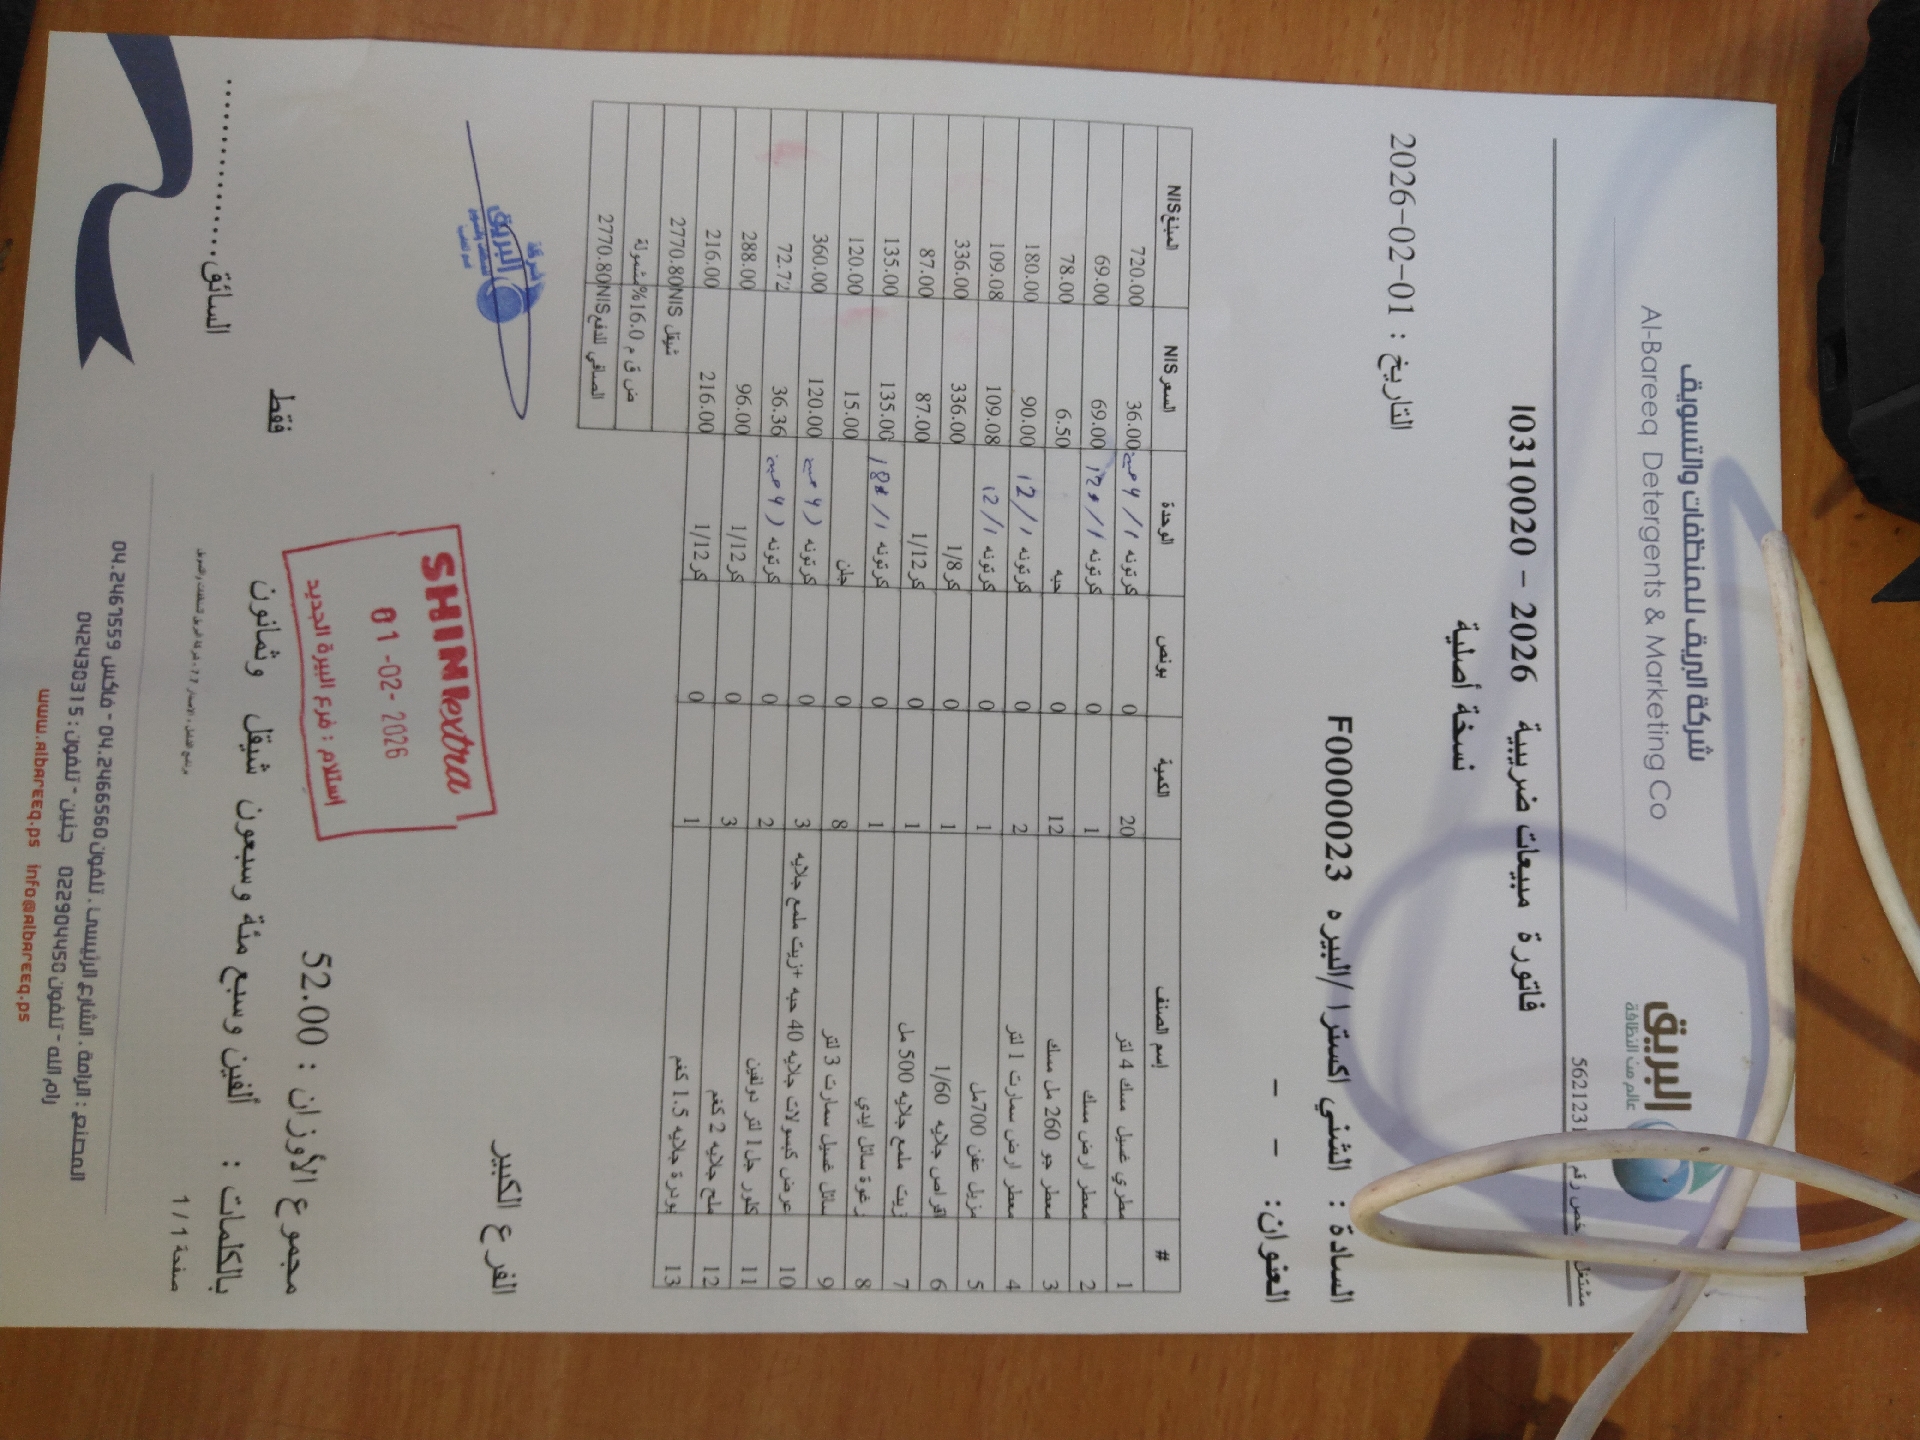 شركة البريق للمنظفات والتسويق
Al-Bareeq Detergents & Marketing Co
البريق
عالم من النظافة
مشتغل خص رقم 562123
فاتورة مبيعات ضريبية 2026 - I0310020
نسخة أصلية
التاريخ : 2026-02-01
السادة : الشني اكسترا /البيره F0000023
العنوان: - -
# إسم الصنف الكمية بونص الوحدة السعر NIS المبلغ NIS
1 مطري غسيل مسك 4 لتر 20 0 كرتونه 36.00 720.00
2 معطر ارض مسك 1 0 كرتونه 69.00 69.00
3 معطر جو 260 مل مسك 12 0 حبه 6.50 78.00
4 معطر ارض سمارت 1 لتر 2 0 كرتونه 12/1 90.00 180.00
5 مزيل عفن 700مل 1 0 كرتونه 12/1 109.08 109.08
6 اقراص جلايه 1/60 1 0 كر1/8 336.00 336.00
7 زيت ملمع جلايه 500 مل 1 0 كر1/12 87.00 87.00
8 رغوة سائل ايدي 1 0 كرتونه 135.00 135.00
9 سائل غسيل سمارت 3 لتر 8 0 جلن 15.00 120.00
10 عرض كبسولات جلايه 40 حبه +زيت ملمع جلايه 3 0 كرتونه 120.00 360.00
11 كلور جل1 لتر دولفين 2 0 كرتونه 36.36 72.72
12 ملح جلايه 2 كغم 3 0 كر1/12 96.00 288.00
13 بودرة جلايه 1.5 كغم 1 0 كر1/12 216.00 216.00
شيقل 2770.80NIS
ض ق م 16.0% مشمولة
الصافي للدفع 2770.80NIS
الفرع الكبير
شركة
البريق
SHINIextra
01-02-2026
استلام : فرع البيرة الجديد
مجموع الأوزان : 52.00
بالكلمات : ألفين وسبع مئة وسبعون شيقل وثمانون فقط
السائق..................
صفحة 1 / 1
المصنع : الرامة . الشارع الرئيسي . تلفون 04.2466560 - فاكس 04.2467559
رام الله - تلفون 022904450 جنين - تلفون : 042430315
www.albareeq.ps info@albareeq.ps